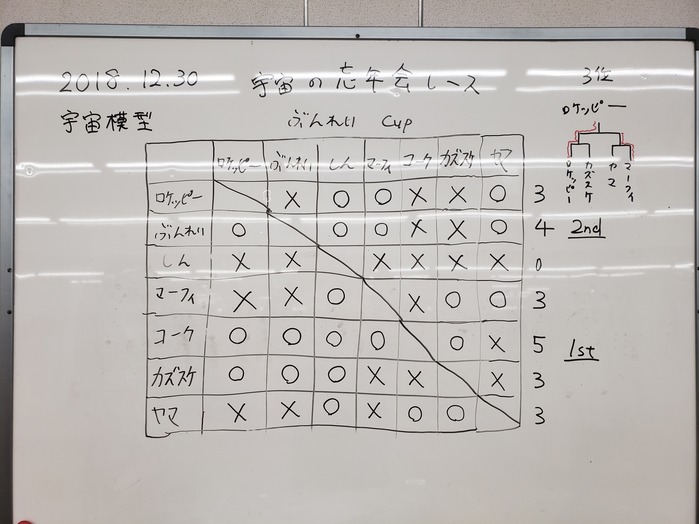 2018.12.30 宇宙の忘年会レース
宇宙模型 ぶんれい cup
3位
ロケッピー
ロケッピー カズスケ ヤマ マーフィ
ロケッピー ぶんれい しん マーフィ コーク カズスケ ヤマ
ロケッピー × ○ ○ × × ○ 3
ぶんれい ○ ○ ○ × × ○ 4 2nd
しん × × × × × × 0
マーフィ × × ○ × ○ ○ 3
コーク ○ ○ ○ ○ ○ × 5 1st
カズスケ ○ ○ ○ × × × 3
ヤマ × × ○ × ○ ○ 3